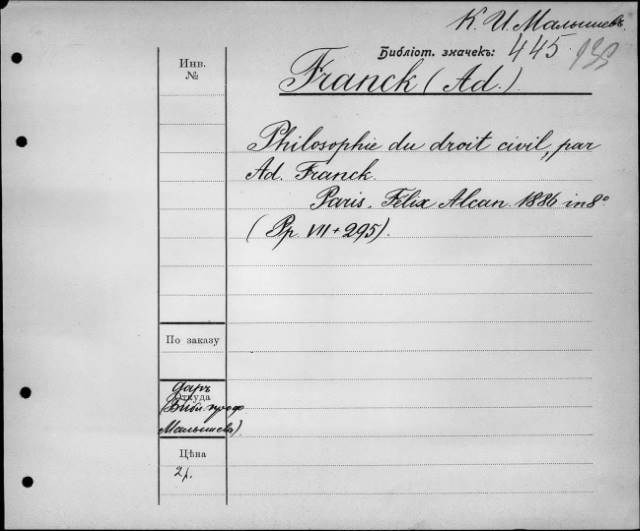 К. И. Малышевъ
Библіот. значекъ: 445.
Инв.
№
Franck (Ad.)
Philosophie du droit civil, par
Ad. Franck.
Paris. Félix Alcan. 1886 in 8°
(Pp. VII + 295).
По заказу
Даръ
Откуда
(Библ. проф.
Малышева).
Цѣна
2 р.